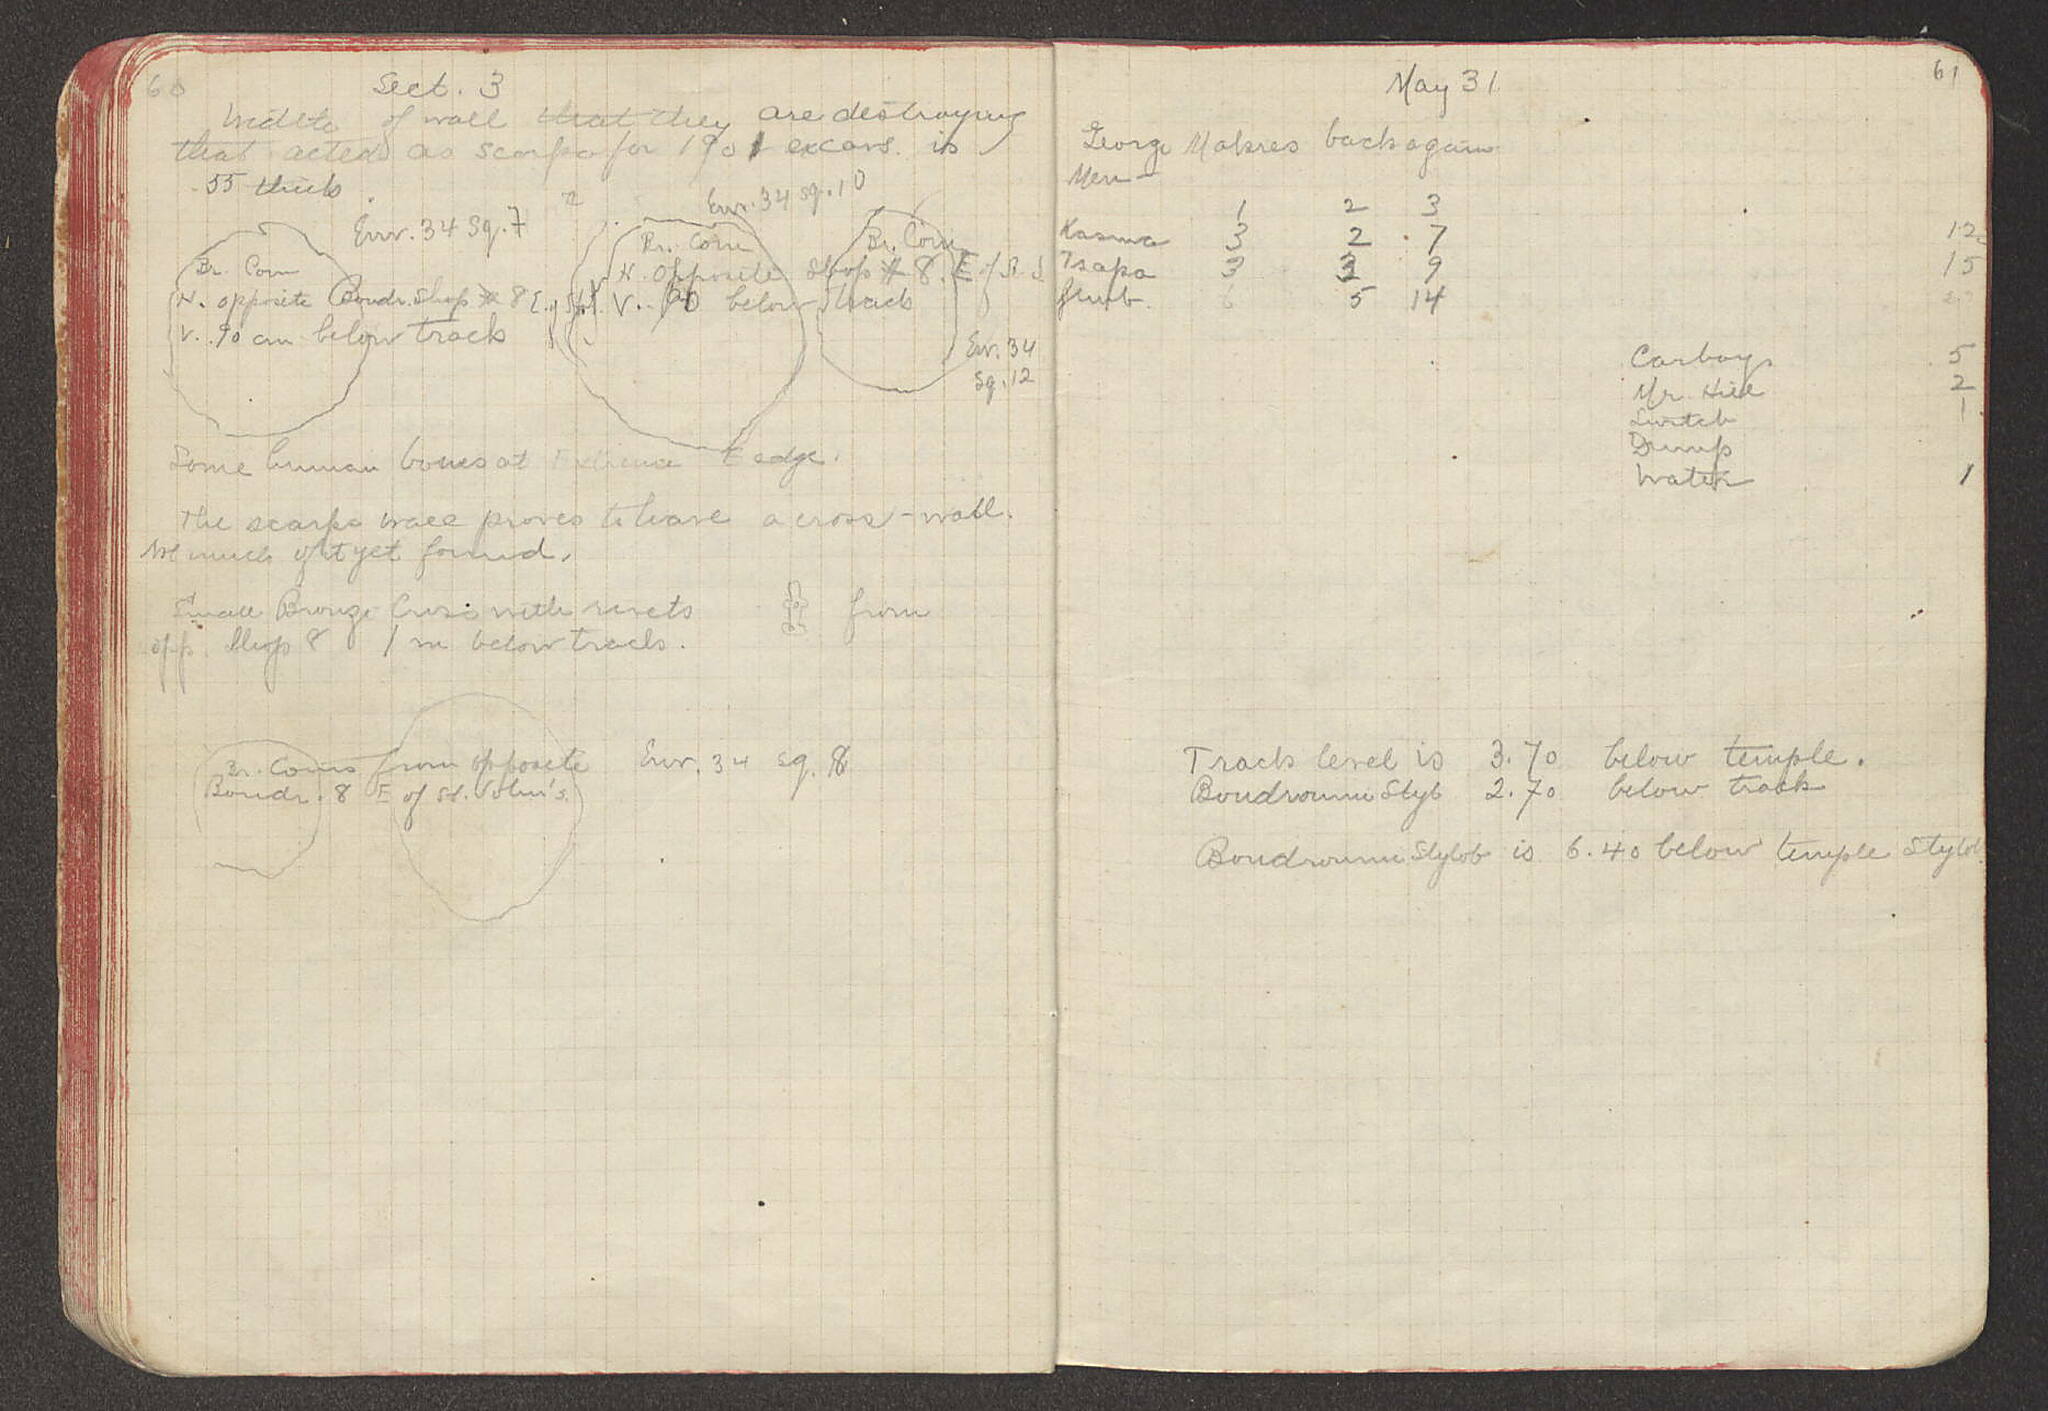 60
Sect. 3
Width of wall that they are destroying
that acted as scarp for 1901 excavs. is
.55 thick.
Env. 34 Sq. 7
Env. 34 sq. 10
Br. Coin
N. opposite Boudr. Shop # 8 E. of St. J.
V. .90 cm below track
Br. Coin
N. Opposite Shop # 8. E of St. J
V. .90 below track
Br. Coin
Env. 34
Sq. 12
Some human bones at Extreme E edge.
The scarp wall proves to have a cross-wall.
Not much of it yet found.
Small Bronze with rivets from
opp. Shop 8 1 m below track.
Br. Coins from opposite Env. 34 sq. 8
Boudr. 8 E of St. John's.
61
May 31
George Makres back again
Men —
1 2 3
Kasma 3 2 7 12
Tsapa 3 3 9 15
6 5 14
Carboys 5
Mr. Hill 2
Switch 1
Dump
Water 1
Track level is 3.70 below temple.
Boudroumi Styl 2.70 below track
Boudroumi Stylob is 6.40 below temple Stylob.